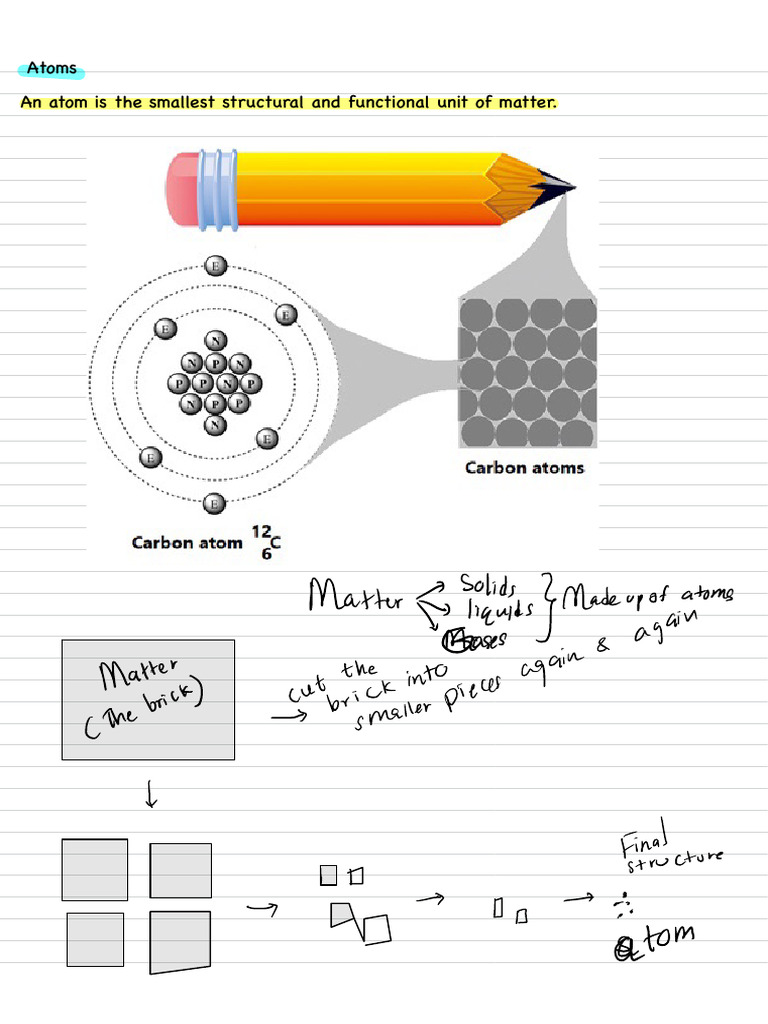 Atoms
An atom is the smallest structural and functional unit of matter.
E
E
E
N
N P N
P P N P
N P P
N
E
E
E
Carbon atoms
Carbon atom ¹²₆C
Matter
Solids
liquids
Gases
Made up of atoms
Matter
(The brick)
cut the
brick into
smaller pieces again & again
Final
structure
atom